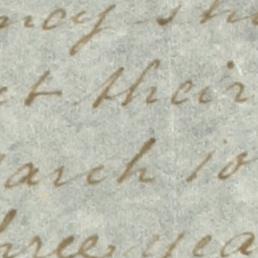 ncy sh
t their
arch 10
hree yea